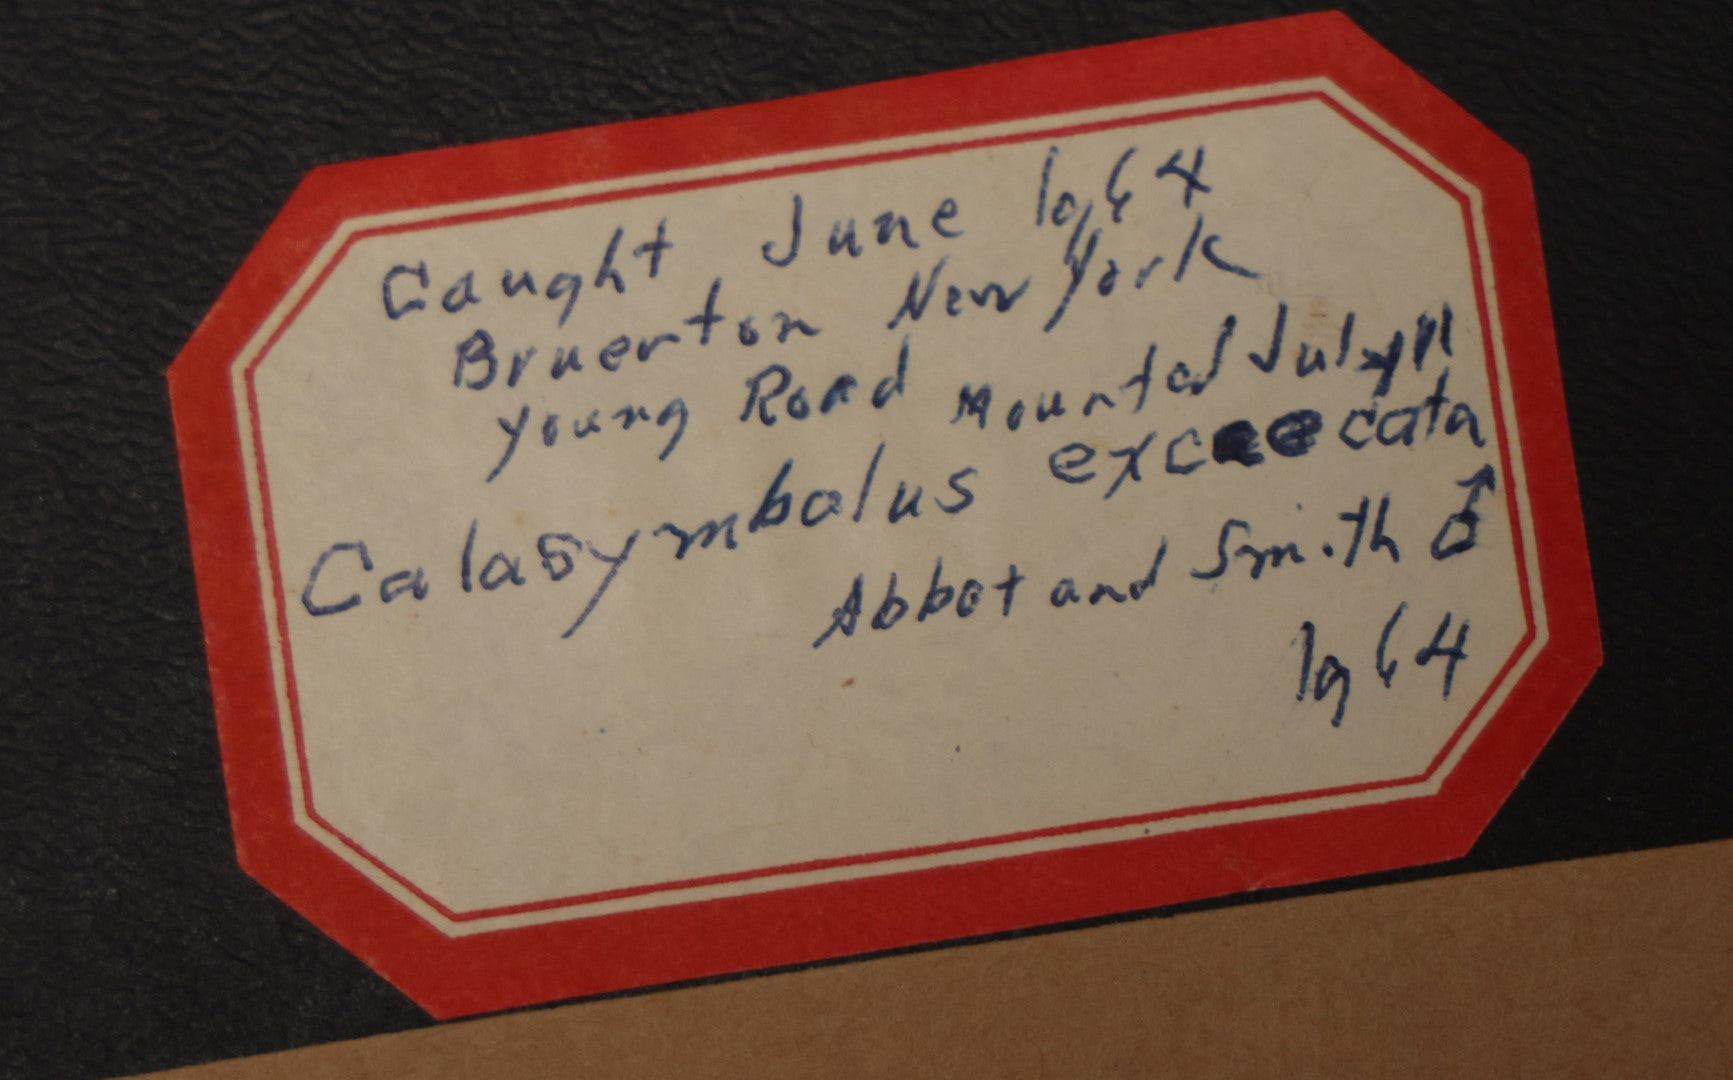 Caught June 1964
Bruerton New York
Young Road Mounted July 11
Calasymbolus excaecata
Abbot and Smith ♂
1964